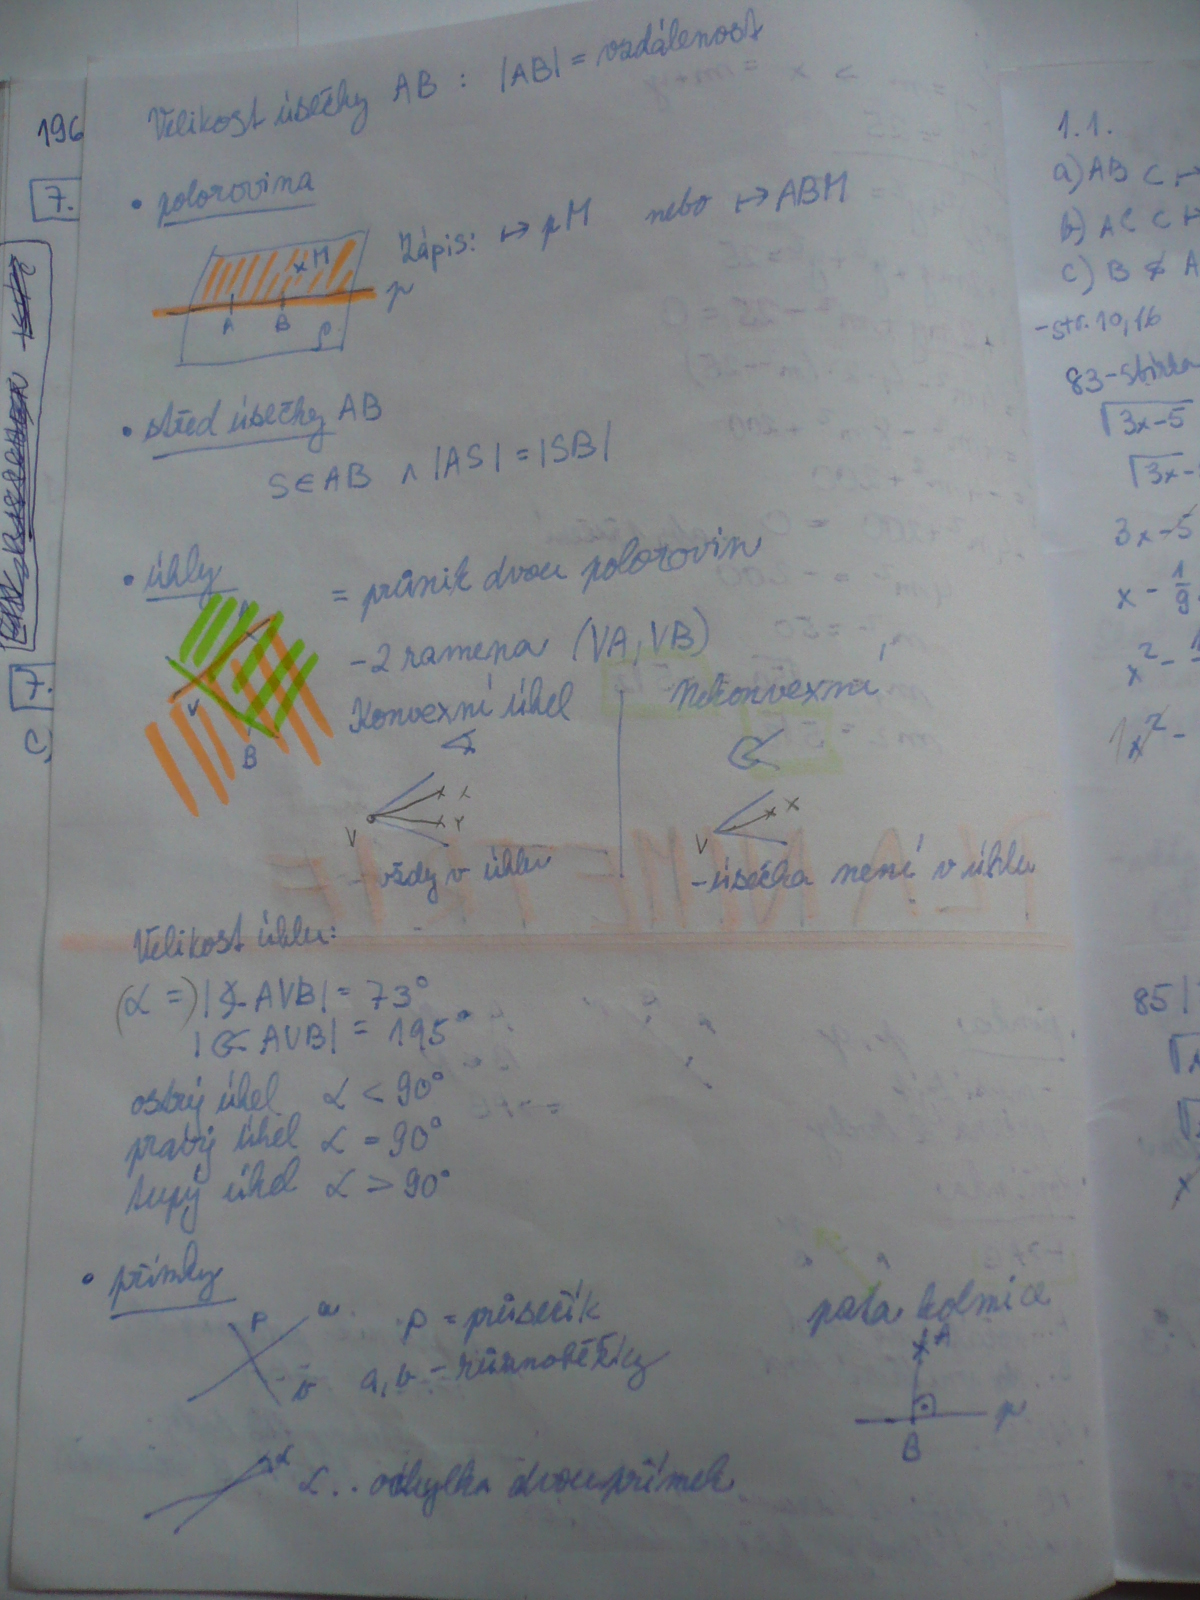 Velikost úsečky AB : |AB| = vzdálenost
196
7.
• polorovina
Zápis: ↦ pM nebo ↦ ABM
M
p
A B ρ
• střed úsečky AB
S∈AB ∧ |AS| = |SB|
• úhly = průnik dvou polorovin
- 2 ramena (VA, VB)
A
V
B
Konvexní úhel
Nekonvexní
X
Y
V
X
V
- vždy v úhlu
- úsečka není v úhlu
Velikost úhlu:
(α =) |∢ AVB| = 73°
| AVB| = 195°
ostrý úhel α < 90°
pravý úhel α = 90°
tupý úhel α > 90°
• přímky
P a
b
P = průsečík
a, b - různoběžky
pata kolmice
A
p
B
α
α .. odchylka dvou přímek
7.
C)
1.1.
a) AB ⊂ ↦
b) AC ⊂ ↦
c) B ∉ A
- str. 10, 16
83 - sbírka
√3x-5
√3x-
3x-5
x - 1/9
x² -
x² -
85|